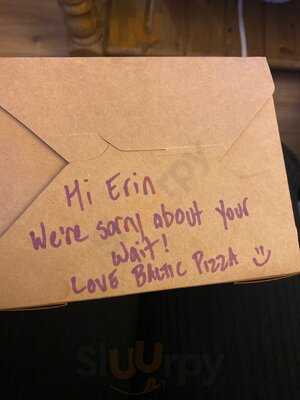 Hi Erin
We're sorry about your
wait!
LOVE BALTIC PIZZA :)
Sluurpy